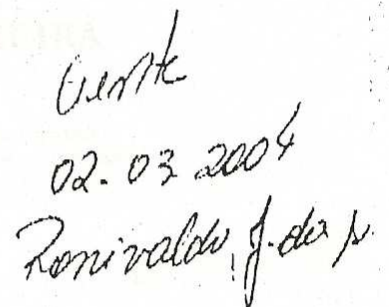 Ciente
02.03.2004
Ronivaldo J. da S.